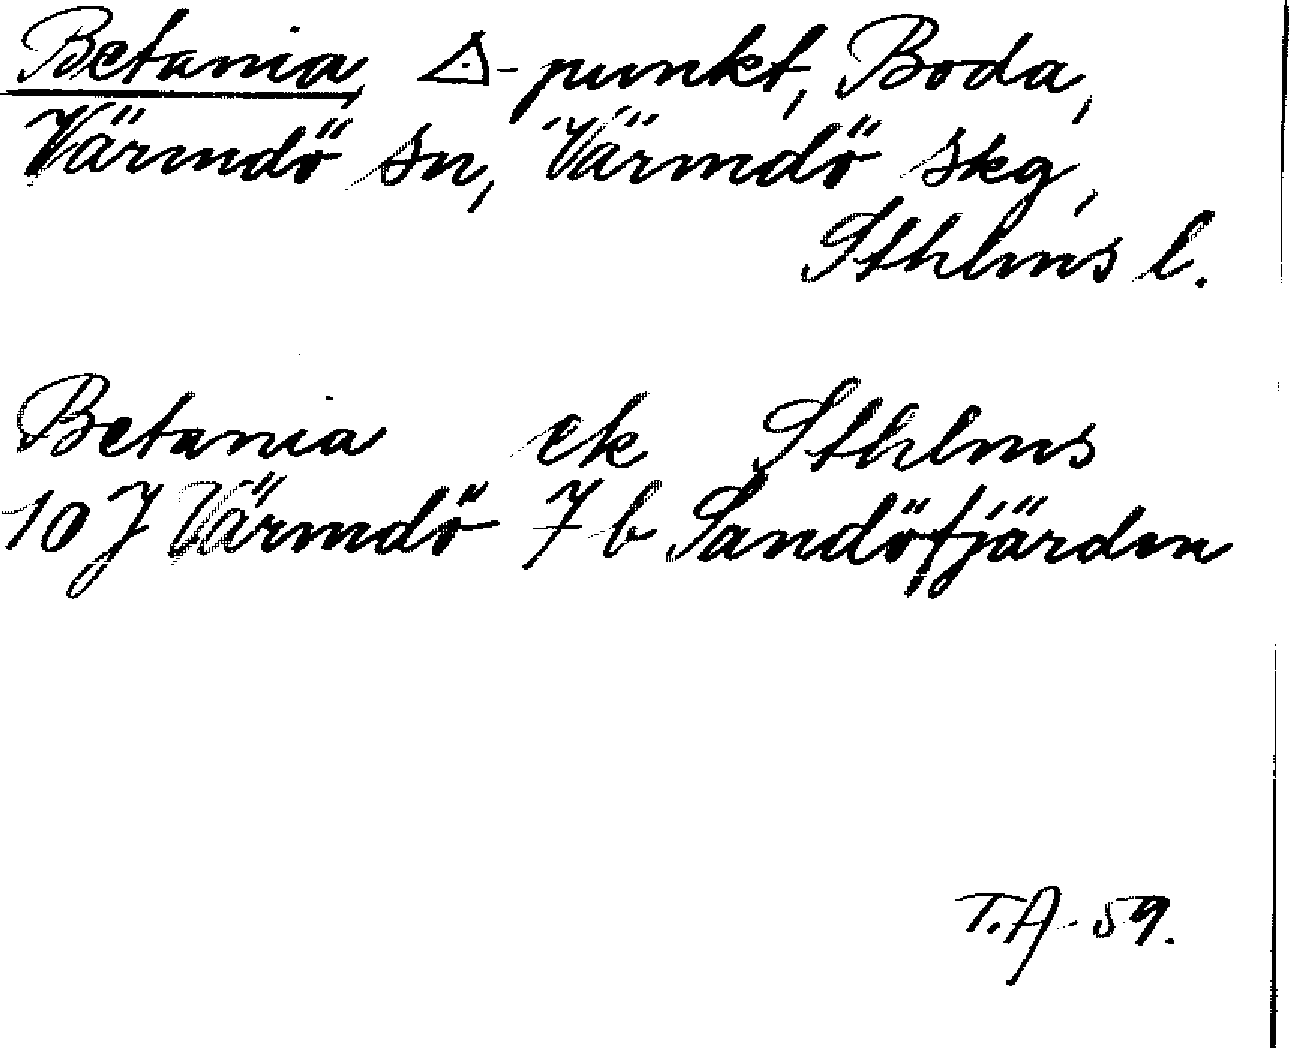 Betania, △-punkt, Boda,
Värmdö sn, Värmdö skg,
Sthlms l.
Betania ek Sthlms
10 J Värmdö 7 b Sandöfjärden
T.A. 59.